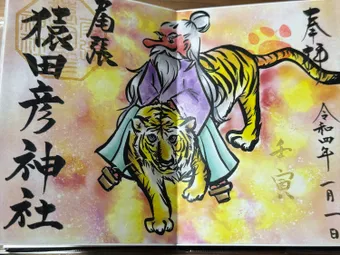 奉拝
令和四年一月一日
壬寅
尾張
猿田彦神社